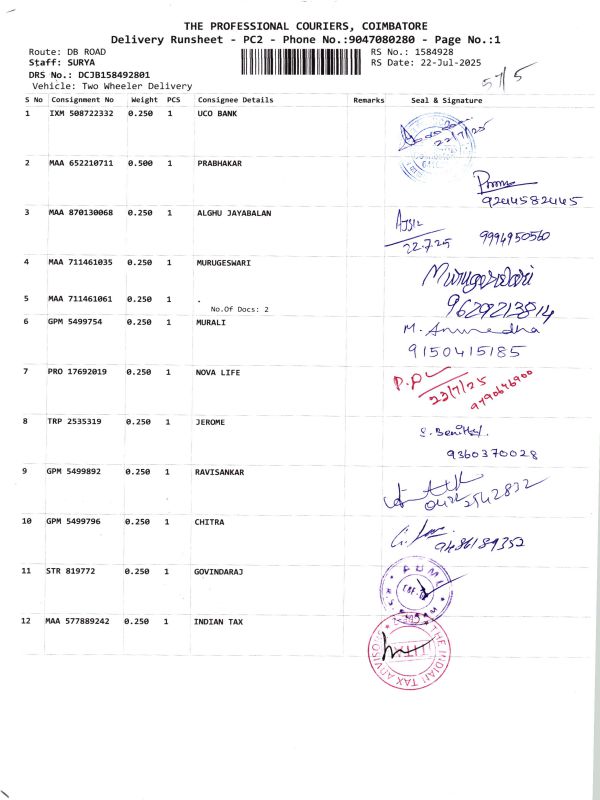 THE PROFESSIONAL COURIERS, COIMBATORE
Delivery Runsheet - PC2 - Phone No.:9047080280 - Page No.:1
Route: DB ROAD RS No.: 1584928
Staff: SURYA RS Date: 22-Jul-2025
DRS No.: DCJB158492801
Vehicle: Two Wheeler Delivery 57/5
S No Consignment No Weight PCS Consignee Details Remarks Seal & Signature
1 IXM 508722332 0.250 1 UCO BANK
22/7/25
2 MAA 652210711 0.500 1 PRABHAKAR
9244582445
3 MAA 870130068 0.250 1 ALGHU JAYABALAN
22.7.25 9994950560
4 MAA 711461035 0.250 1 MURUGESWARI Murugeswari
5 MAA 711461061 0.250 1 . 9629213814
No.Of Docs: 2
6 GPM 5499754 0.250 1 MURALI M. Anuradha
9150415185
7 PRO 17692019 0.250 1 NOVA LIFE P.P
22/7/25 9790646900
8 TRP 2535319 0.250 1 JEROME
9360370028
9 GPM 5499892 0.250 1 RAVISANKAR
0422 2542832
10 GPM 5499796 0.250 1 CHITRA
9486189352
11 STR 819772 0.250 1 GOVINDARAJ
12 MAA 577889242 0.250 1 INDIAN TAX
THE INDIAN TAX